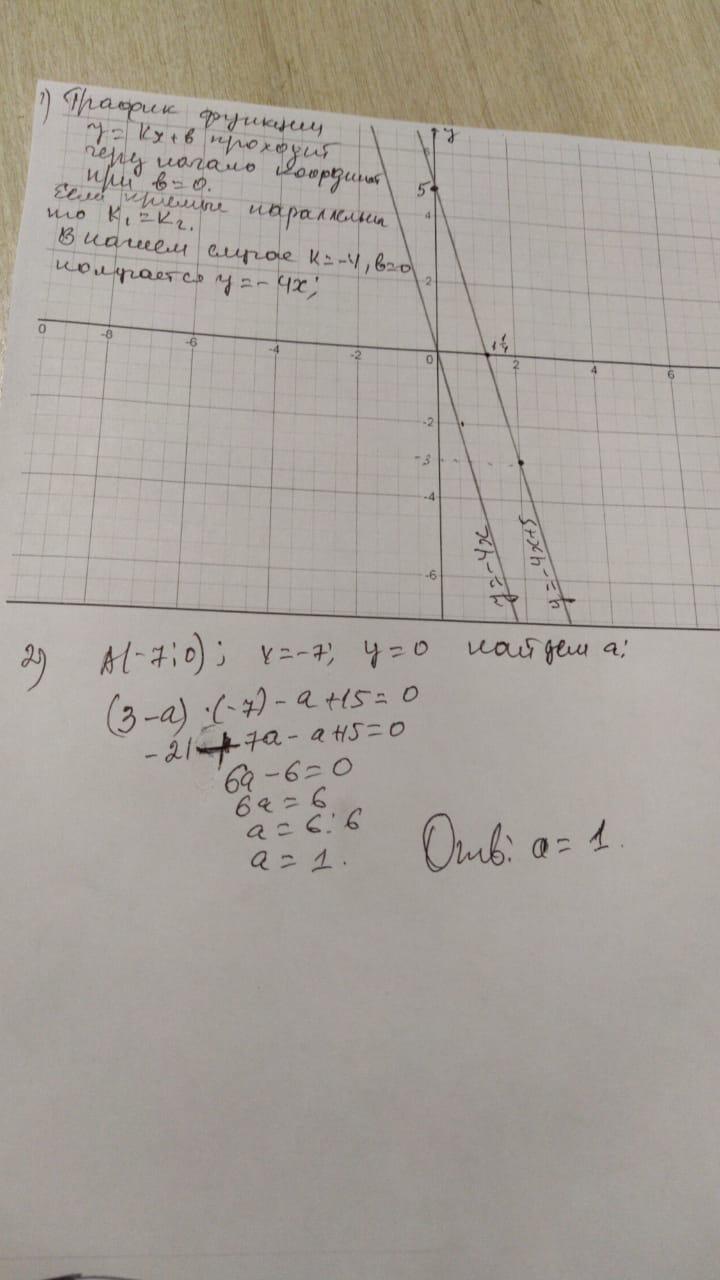 1) График функции
y = kx+в проходит
через начало координат
при в=0.
Если прямые параллельны
то K₁=K₂.
В нашем случае K=-4, в=0
получается y=-4x;
y
5
4
2
1¼
0 -8 -6 -4 -2 0 2 4 6
-2
-3
-4
-6
y=-4x
y=-4x+5
2) A(-7;0); x=-7; y=0 найдем a:
(3-a)·(-7)-a+15=0
-21+7a-a+15=0
6a-6=0
6a=6
a=6:6
a=1.
Отв: a=1.